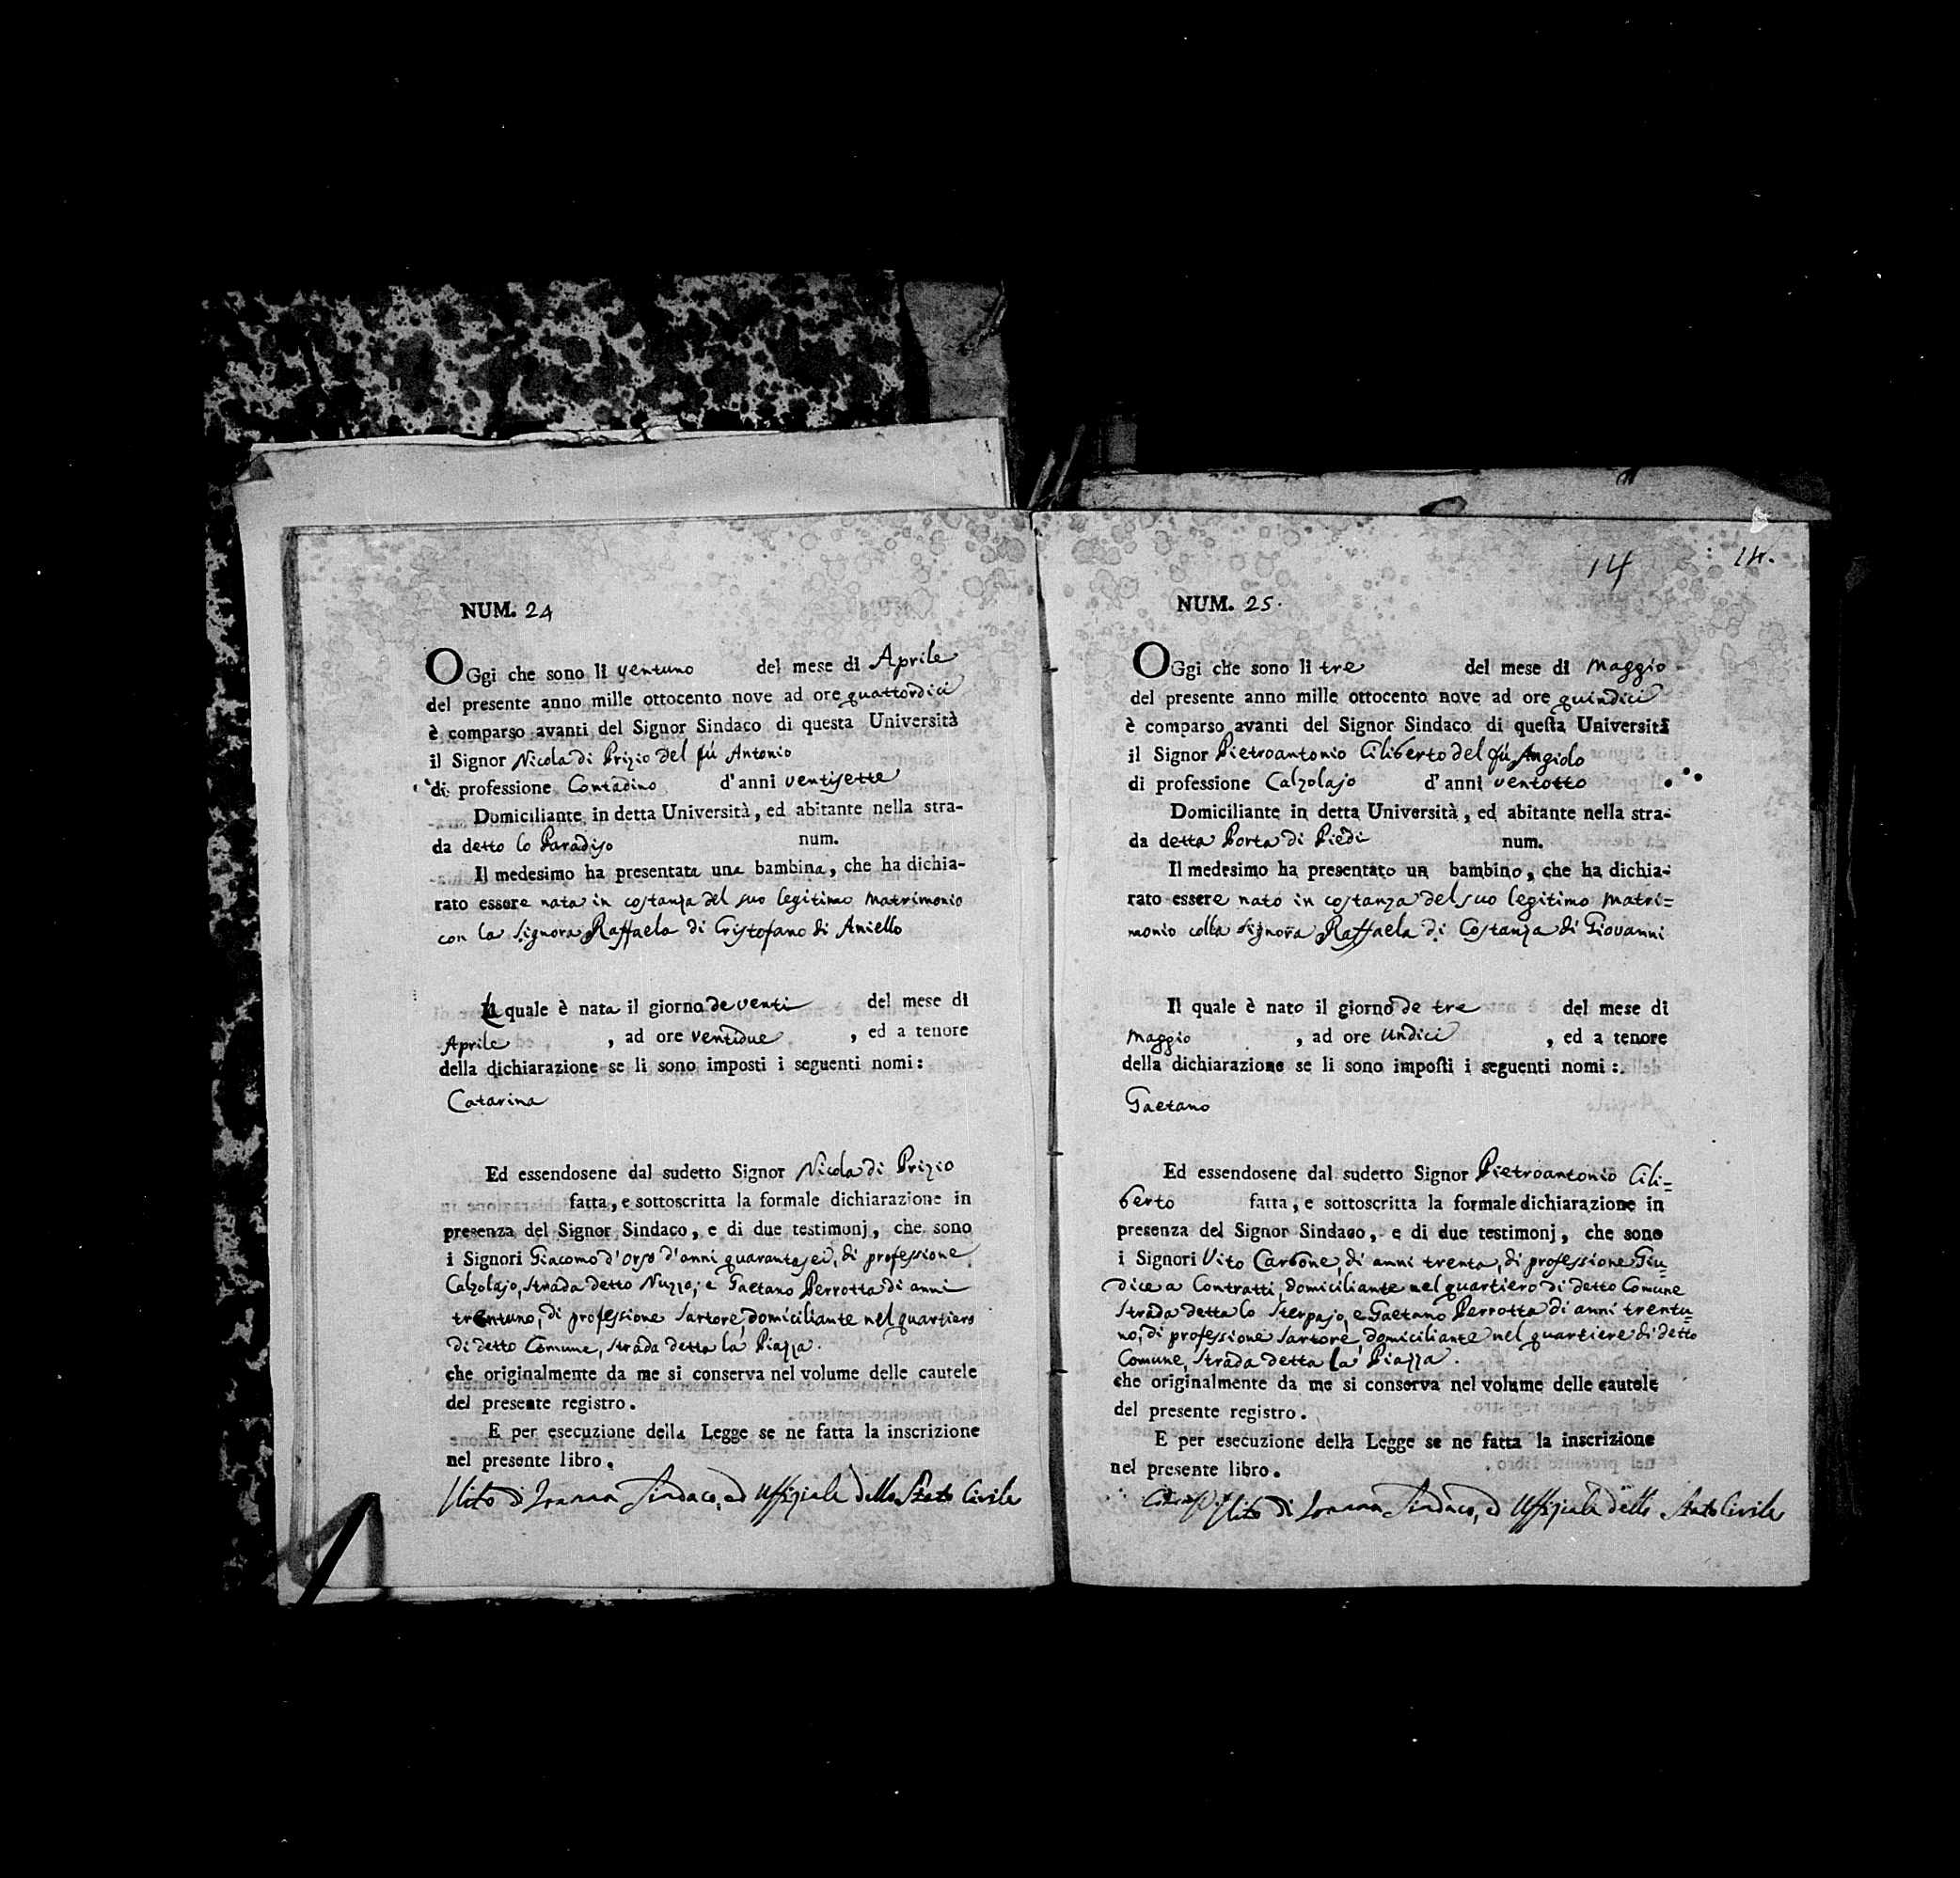 NUM. 24
OGgi che sono li ventuno del mese di Aprile
del presente anno mille ottocento nove ad ore quattordici
è comparso avanti del Signor Sindaco di questa Università
il Signor Nicola di Prizio del fú Antonio
di professione Contadino d'anni ventisette
Domiciliante in detta Università, ed abitante nella stra-
da detto lo Paradiso num.
Il medesimo ha presentata una bambina, che ha dichia-
rato essere nata in costanza del suo legitimo Matrimonio
con la Signora Raffaela di Cristofano di Aniello
La quale è nata il giorno de venti del mese di
Aprile, ad ore ventidue, ed a tenore
della dichiarazione se li sono imposti i seguenti nomi:
Catarina
Ed essendosene dal sudetto Signor Nicola di Prizio
fatta, e sottoscritta la formale dichiarazione in
presenza del Signor Sindaco, e di due testimonj, che sono
i Signori Giacomo d'Orso d'anni quarantasei, di professione
Calzolajo, strada detto Nuzzo, e Gaetano Perrotta di anni
trentuno, di professione Sartore, domiciliante nel quartiero
di detto Comune, strada detta la Piazza.
che originalmente da me si conserva nel volume delle cautele
del presente registro.
E per esecuzione della Legge se ne fatta la inscrizione
nel presente libro.
Vito di Sindaco, ed Uffiziale dello Stato Civile
14 14.
NUM. 25.
OGgi che sono li tre del mese di Maggio
del presente anno mille ottocento nove ad ore quindici
è comparso avanti del Signor Sindaco di questa Università
il Signor Pietroantonio Ciliberto del fú Angiolo
di professione Calzolajo d'anni ventotto
Domiciliante in detta Università, ed abitante nella stra-
da detta Porta di Piedi num.
Il medesimo ha presentato un bambino, che ha dichia-
rato essere nato in costanza del suo legitimo Matri=
monio colla Signora Raffaela di Costanza di Giovanni
Il quale è nato il giorno de tre del mese di
Maggio, ad ore undici, ed a tenore
della dichiarazione se li sono imposti i seguenti nomi:
Gaetano
Ed essendosene dal sudetto Signor Pietroantonio Cili=
berto fatta, e sottoscritta la formale dichiarazione in
presenza del Signor Sindaco, e di due testimonj, che sono
i Signori Vito Carbone, di anni trenta, di professione Giu=
dice a Contratti, domiciliante nel quartiero di detto Comune
strada detta lo Sterpajo, e Gaetano Perrotta di anni trentu=
no, di professione Sartore, domiciliante nel quartiere di detto
Comune, strada detta la Piazza.
che originalmente da me si conserva nel volume delle cautele
del presente registro.
E per esecuzione della Legge se ne fatta la inscrizione
nel presente libro.
Vito di Sindaco, ed Uffiziale dello Stato Civile